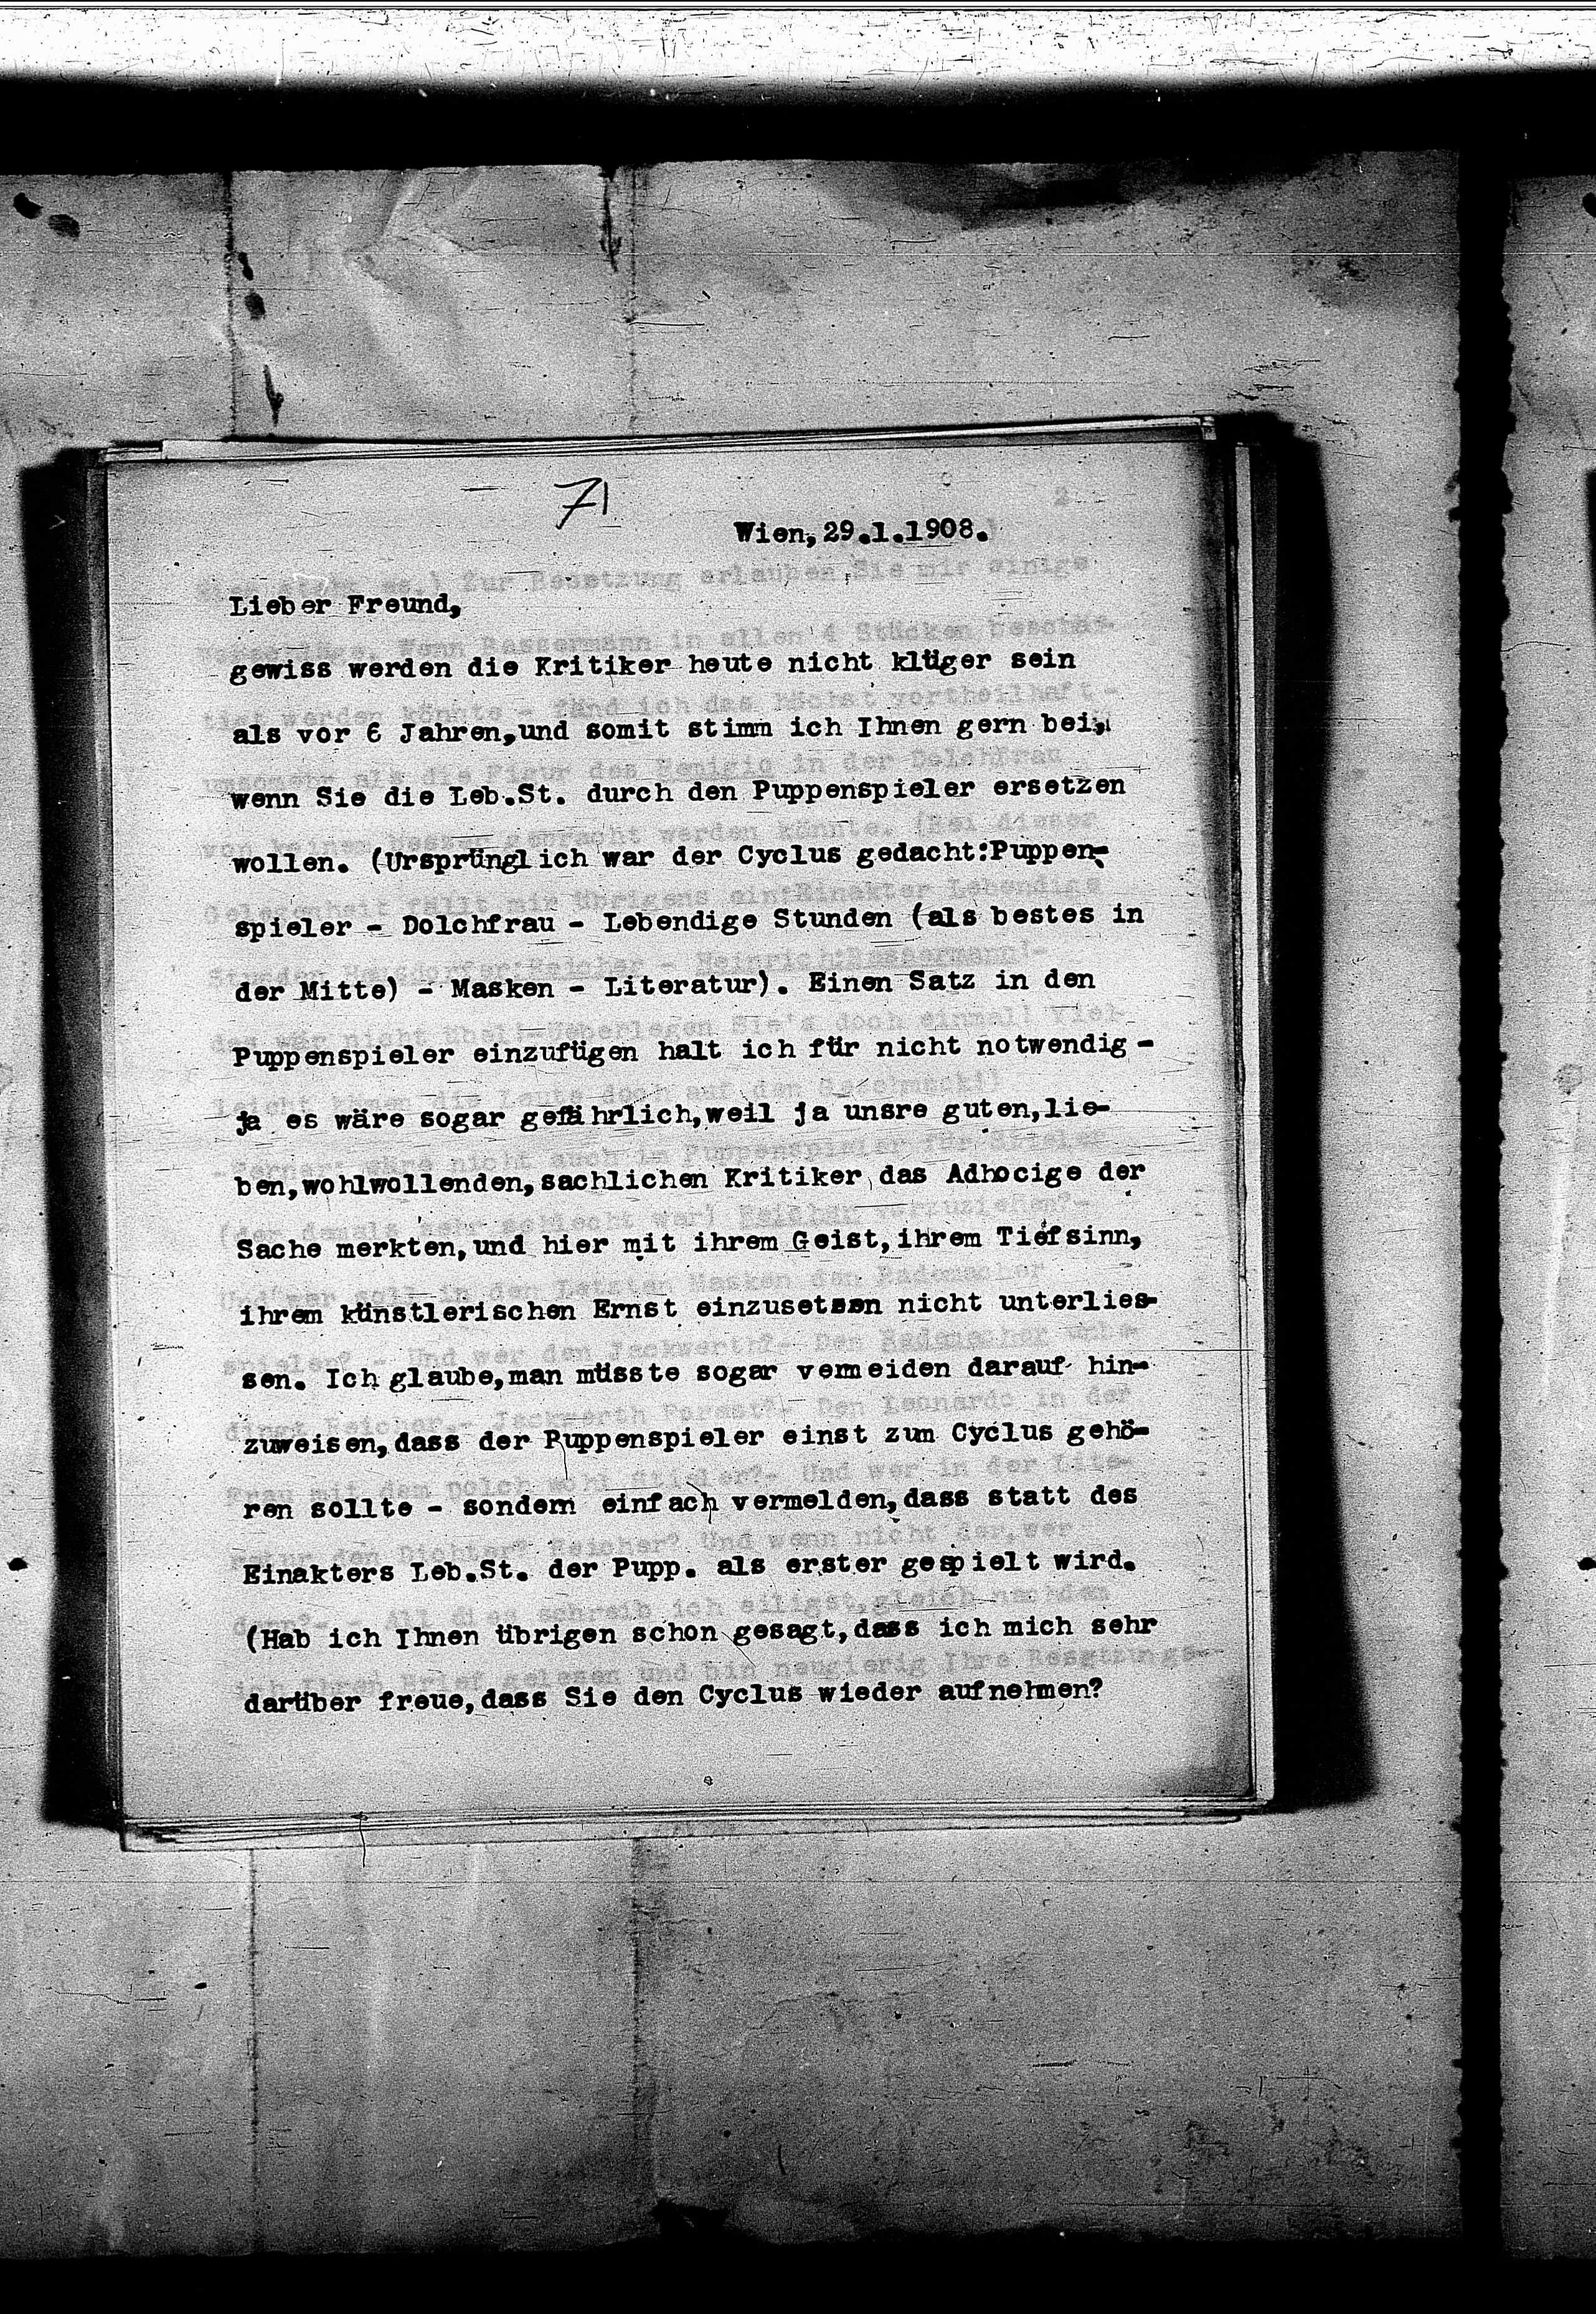 71
Wien,29.1.1908.
Lieber Freund,
gewiss werden die Kritiker heute nicht klüger sein
als vor 6 Jahren,und somit stimm ich Ihnen gern bei,
wenn Sie die Leb.St. durch den Puppenspieler ersetzen
wollen. (Ursprünglich war der Cyclus gedacht:Puppen-
spieler - Dolchfrau - Lebendige Stunden (als bestes in
der Mitte) - Masken - Literatur). Einen Satz in den
Puppenspieler einzufügen halt ich für nicht notwendig -
ja es wäre sogar gefährlich,weil ja unsre guten,lie-
ben,wohlwollenden,sachlichen Kritiker das Adhocige der
Sache merkten,und hier mit ihrem Geist,ihrem Tiefsinn,
ihrem künstlerischen Ernst einzusetzen nicht unterlies-
sen. Ich glaube,man müsste sogar vermeiden darauf hin-
zuweisen,dass der Puppenspieler einst zum Cyclus gehö-
ren sollte - sondern einfach vermelden,dass statt des
Einakters Leb.St. der Pupp. als erster gespielt wird.
(Hab ich Ihnen übrigen schon gesagt,dass ich mich sehr
darüber freue,dass Sie den Cyclus wieder aufnehmen?